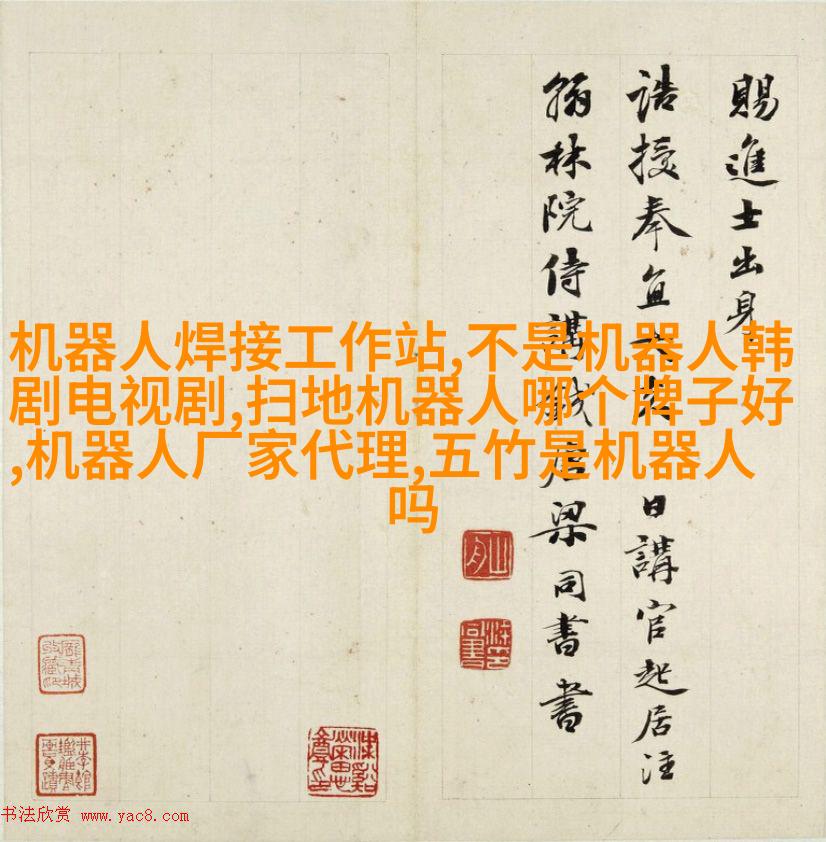 賜進士出身
誥授奉直大日講官起居注
翰林院侍講梁同書書
机器人焊接工作站,不是机器人韩
剧电视剧,扫地机器人哪个牌子好
,机器人厂家代理,五竹是机器人
吗
山舟
书法欣赏 www.yac8.com